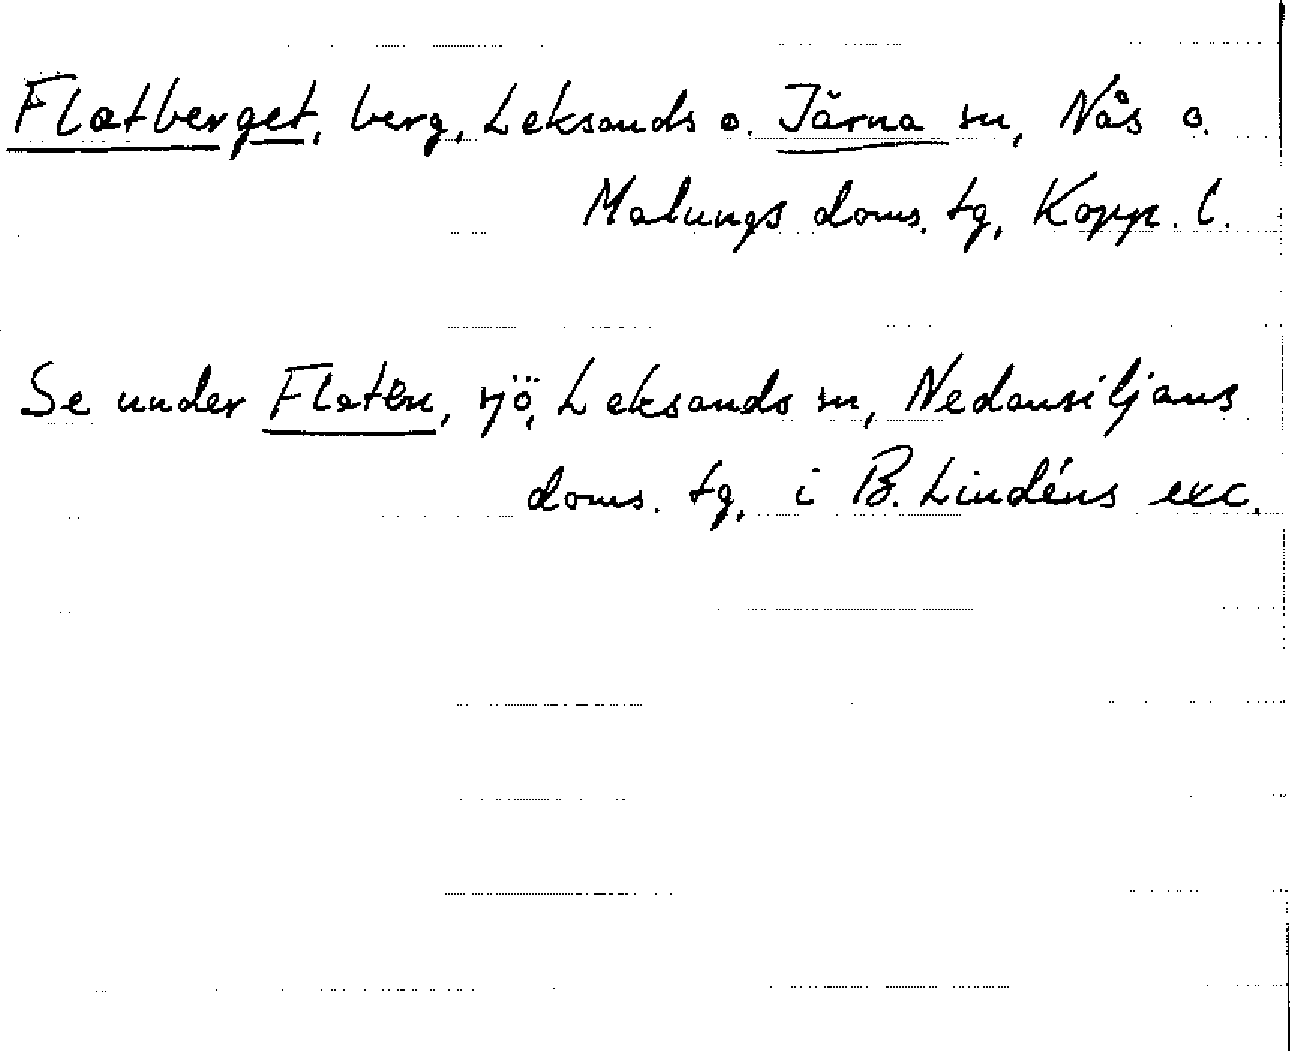 Flatberget, berg, Leksands o. Järna sn, Nås o.
Malungs doms. tg, Kopp. l.
Se under Flaten, sjö, Leksands sn, Nedansiljans
doms. tg, i B. Lindéns exc.